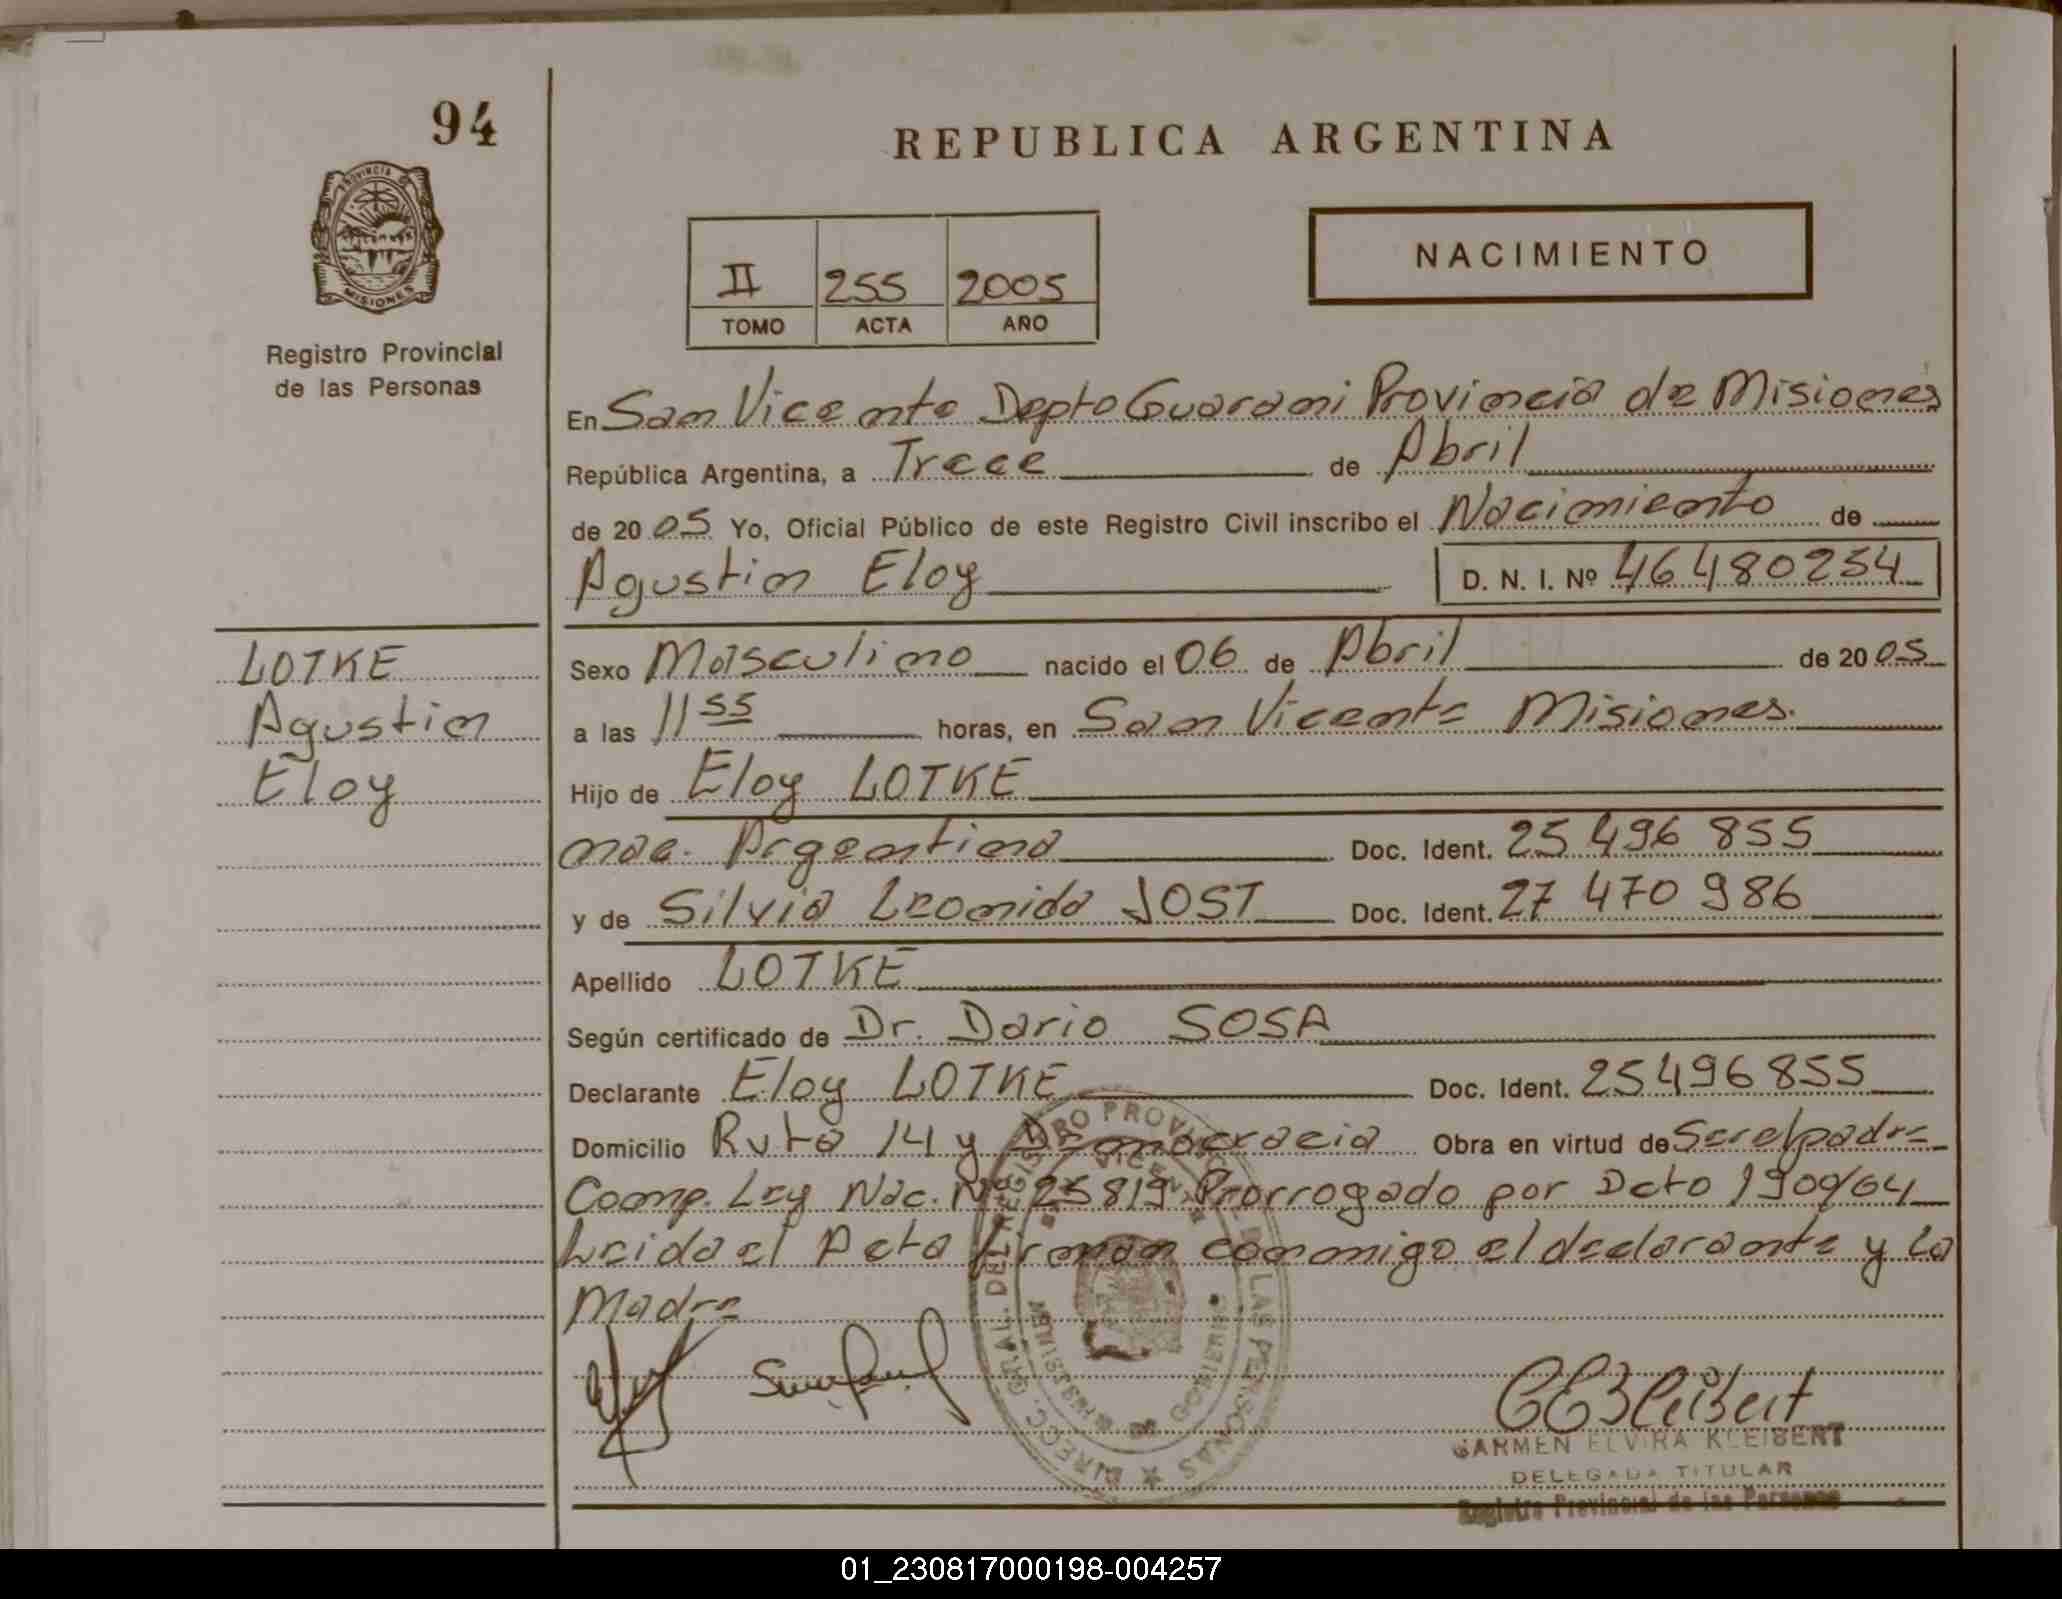 94
REPUBLICA ARGENTINA
PROVINCIA DE
MISIONES
Registro Provincial
de las Personas
II 255 2005
TOMO ACTA AÑO
NACIMIENTO
En San Vicente Depto Guarani Provincia de Misiones
República Argentina, a Trece de Abril
de 2005 Yo, Oficial Público de este Registro Civil inscribo el Nacimiento de
Agustin Eloy D. N. I. Nº 46480254
LOTKE
Agustin
Eloy
Sexo Masculino nacido el 06 de Abril de 2005
a las 11 55 horas, en San Vicente Misiones.
Hijo de Eloy LOTKE
nac. Argentina Doc. Ident. 25 496 855
y de Silvia Leonida JOST Doc. Ident. 27 470 986
Apellido LOTKE
Según certificado de Dr. Dario SOSA
Declarante Eloy LOTKE Doc. Ident. 25496855
Domicilio Ruta 14 y Democracia Obra en virtud de Ser el padre
Comp. Ley Nac. Nº 25819 Prorrogado por Dcto 1900/04
Leida el Acta firman conmigo el declarante y la
Madre
DIRECC. GRAL. DEL REGISTRO PROVINCIAL DE LAS PERSONAS
MINISTERIO DE GOBIERNO
CEKleibert
CARMEN ELVIRA KLEIBERT
DELEGADA TITULAR
Registro Provincial de las Personas
01_230817000198-004257